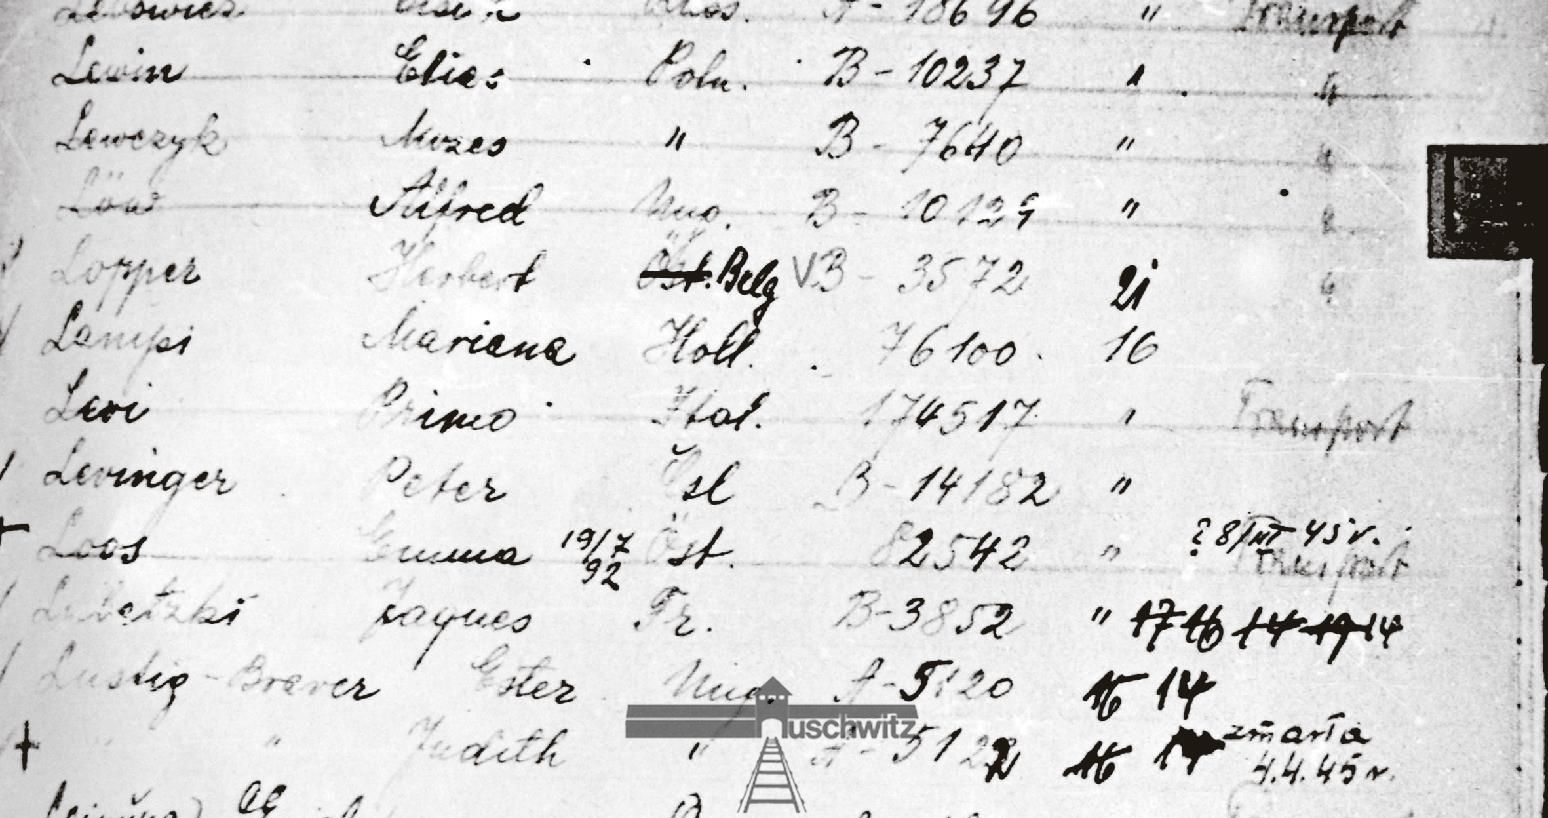 A-18696 " Transport
Lewin Elias Poln. B-10237 " "
Lewczyk Mozes " B-7640 " "
Löw Alfred Ung. B-10129 " "
Lopper Herbert Öst. Belg VB-3572 21 "
Lampi Mariana Holl. 76100 16
Levi Primo Ital. 174517 " Transport
Levinger Peter Čsl B-14182 "
Loos Emma 19/7 92 Öst. 82542 " ? 8/III 45 r. Transport
Jaques Fr. B-3852 " 17 16 14 19 14
Lustig-Braver Ester Ung. A-5120 16 14
+ " " Judith " A-5122 16 14 zmarła
4.4.45 r.
auschwitz